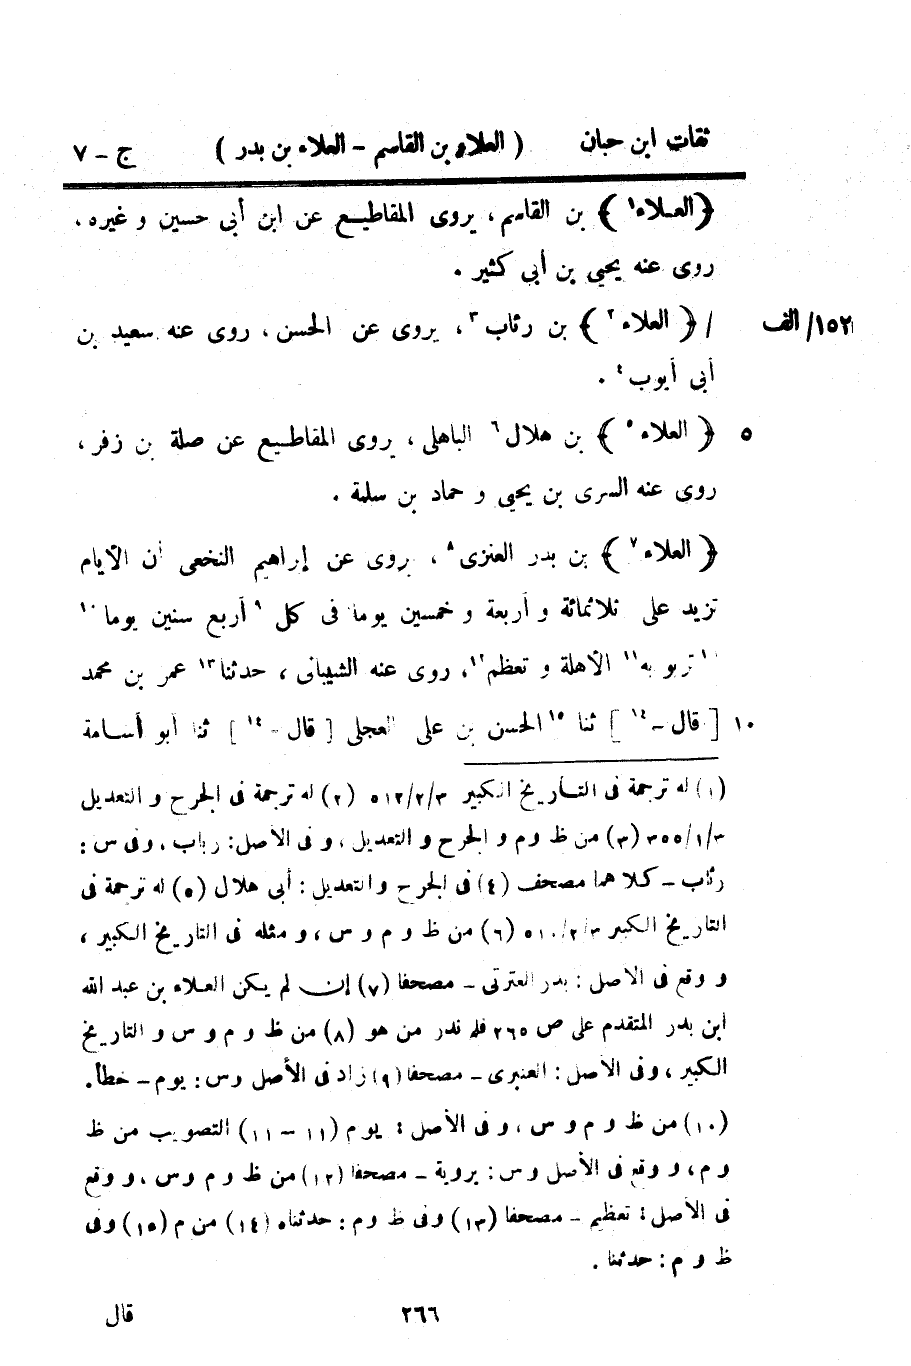 ثقات ابن حبان ( العلاء بن القاسم – العلاء بن بدر ) ج – ٧
﴿العلاء١﴾ بن القاسم ، يروى المقاطيع عن ابن أبى حسين و غيره ،
روى عنه يحيى بن أبى كثير .
١٥٢/ الف / ﴿ العلاء ٢﴾ بن رئاب ٣ ، يروى عن الحسن ، روى عنه سعيد بن
أبى أيوب ٤ .
٥ ﴿ العلاء ٥﴾ بن هلال ٦ الباهلى ، يروى المقاطيع عن صلة بن زفر ،
روى عنه السرى بن يحيى و حماد بن سلمة .
﴿ العلاء ٧﴾ بن بدر العنزى ٨ ، يروى عن إبراهيم النخعى أن الأيام
تزيد على ثلاثمائة و أربعة و خمسين يوما فى كل ٩ أربع سنين يوما ١٠
١١ تربو به ١١ الأهلة و تعظم ١٢، روى عنه الشيبانى ، حدثنا ١٣ عمر بن محمد
١٠ [ قال – ١٤ ] ثنا ١٥ الحسن بن على العجلى [ قال – ١٤ ] ثنا أبو أسامة
(١) له ترجمة فى التاريخ الكبير ٥١٢/٢/٣ (٢) له ترجمة فى الجرح و التعديل
٣٥٥/١/٣ (٣) من ظ و م و الجرح و التعديل ، و فى الأصل: رباب ، وفى س :
رئاب – كلاهما مصحف (٤) فى الجرح و التعديل : أبى هلال (٥) له ترجمة فى
التاريخ الكبير ٥١٠/٢/٣ (٦) من ظ و م و س ، و مثله فى التاريخ الكبير ،
و وقع فى الأصل : بدر العترتى – مصحفا (٧) إن لم يكن العلاء بن عبد الله
ابن بدر المتقدم على ص ٢٦٥ فلم ندر من هو (٨) من ظ و م و س و التاريخ
الكبير ، وفى الأصل : العنبرى – مصحفا (٩) زاد فى الأصل وس : يوم – خطأ.
(١٠) من ظ و م و س ، و فى الأصل : يوم (١١ – ١١) التصويب من ظ
و م ، و وقع فى الأصل و س : بروية – مصحفا (١٢) من ظ و م وس ، و وقع
فى الأصل : تعظيم – مصحفا (١٣) وفى ظ وم : حدثناه (١٤) من م (١٥) وفى
ظ و م : حدثنا .
٢٦٦ قال